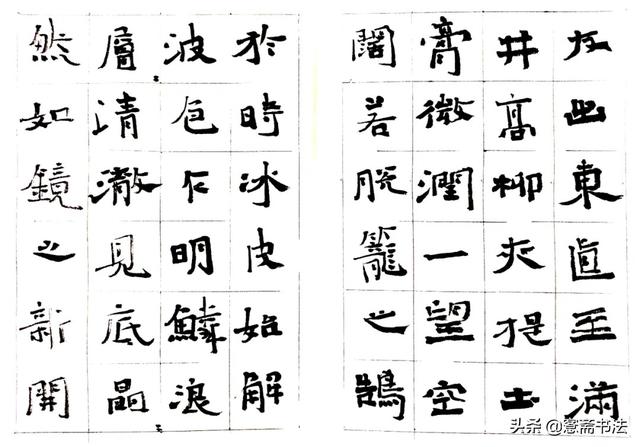 友出東直至滿
井高柳夾堤土
膏微潤一望空
闊若脫籠之鵠
於時冰皮始解
波色乍明鱗浪
層々清澈見底晶々
然如鏡之新開
头条 @斋书法